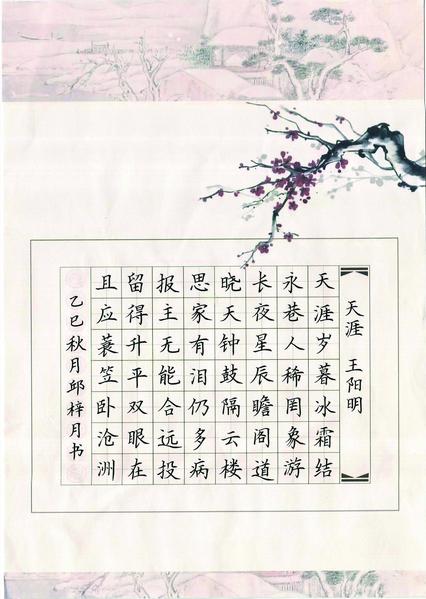 天涯 王阳明
天涯岁暮冰霜结
永巷人稀罔象游
长夜星辰瞻阁道
晓天钟鼓隔云楼
思家有泪仍多病
报主无能合远投
留得升平双眼在
且应蓑笠卧沧洲
乙巳秋月邱梓月书